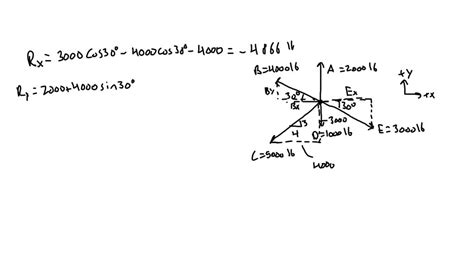 Rx = 3000 Cos30° - 4000cos30° - 4000 = - 4866 lb
Ry = 2000+4000sin30°
B=4000lb
A = 2000lb
+Y
+x
By
30°
Bx
Ex
30°
3000
3
4
D=1000lb
E = 3000lb
C = 5000 lb
4000